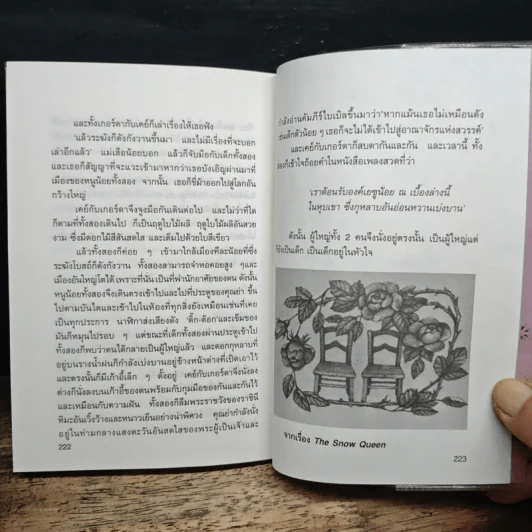 และทั้งเกอร์ดากับเคย์ก็เล่าเรื่องให้เธอฟัง
'แล้วระฆังก็ดังกังวานขึ้นมา และไม่มีเรื่องที่จะบอก
เล่าอีกแล้ว' แม่เสือน้อยบอก แล้วก็จับมือกับเด็กทั้งสอง
และเธอก็สัญญาที่จะแวะเข้ามาหากว่าเธอบังเอิญผ่านมาที่
เมืองของหนูน้อยทั้งสอง จากนั้น เธอก็ขี่ม้าออกไปสู่โลกอัน
กว้างใหญ่
เคย์กับเกอร์ดาจึงจูงมือกันเดินต่อไป และไม่ว่าที่ใด
ก็ตามที่ทั้งสองเดินไป ก็เป็นฤดูใบไม้ผลิ ฤดูใบไม้ผลิอันสวย
งาม ซึ่งมีดอกไม้สีสันสดใส และเต็มไปด้วยใบสีเขียว
แล้วทั้งสองก็ค่อย ๆ เข้ามาใกล้เมืองทีละน้อยที่ซึ่ง
ระฆังโบสถ์ก็ดังกังวาน ทั้งสองสามารถจำหอคอยสูง ๆและ
เมืองอันใหญ่โตได้ เพราะที่นั่นเป็นที่พำนักอาศัยของตน ดังนั้น
หนูน้อยทั้งสองจึงเดินตรงเข้าไปและไปที่ประตูของคุณย่า ขึ้น
ไปตามบันไดและเข้าไปในห้องที่ทุกสิ่งยังเหมือนเช่นที่เคย
เป็นทุกประการ นาฬิกาส่งเสียงดัง 'ติ๊ก-ต๊อก'และเข็มของ
มันก็หมุนไปรอบ ๆ แต่ขณะที่เด็กทั้งสองผ่านประตูเข้าไป
ทั้งสองก็พบว่าตนได้กลายเป็นผู้ใหญ่แล้ว และดอกกุหลาบที่
อยู่บนรางน้ำฝนก็กำลังเบ่งบานอยู่ข้างหน้าต่างที่เปิดเอาไว้
และตรงนั้นก็มีเก้าอี้เล็ก ๆ ตั้งอยู่ เคย์กับเกอร์ดาจึงนั่งลง
ต่างก็นั่งลงบนเก้าอี้ของตนพร้อมกับกุมมือของกันและกันไว้
และเหมือนกับความฝัน ทั้งสองก็ลืมพระราชวังของราชินี
หิมะอันเวิ้งว้างและหนาวเย็นอย่างน่าพิศวง คุณย่ากำลังนั่ง
อยู่ในท่ามกลางแสงตะวันอันสดใสของพระผู้เป็นเจ้าและ
222
กำลังอ่านคัมภีร์ไบเบิลขึ้นมาว่า'หากแม้นเธอไม่เหมือนดัง
เช่นเด็กตัวน้อย ๆ เธอก็จะไม่ได้เข้าไปสู่อาณาจักรแห่งสวรรค์'
และเคย์กับเกอร์ดาก็สบตากันและกัน และเวลานี้ ทั้ง
สองก็เข้าใจถ้อยคำในหนังสือเพลงสวดที่ว่า
'เราต้อนรับองค์เยซูน้อย ณ เบื้องล่างนี้
ในหุบเขา ซึ่งกุหลาบอันอ่อนหวานเบ่งบาน'
ดังนั้น ผู้ใหญ่ทั้ง 2 คนจึงนั่งอยู่ตรงนั้น เป็นผู้ใหญ่แต่
ก็ยังเป็นเด็ก เป็นเด็กอยู่ในหัวใจ
จากเรื่อง The Snow Queen
223